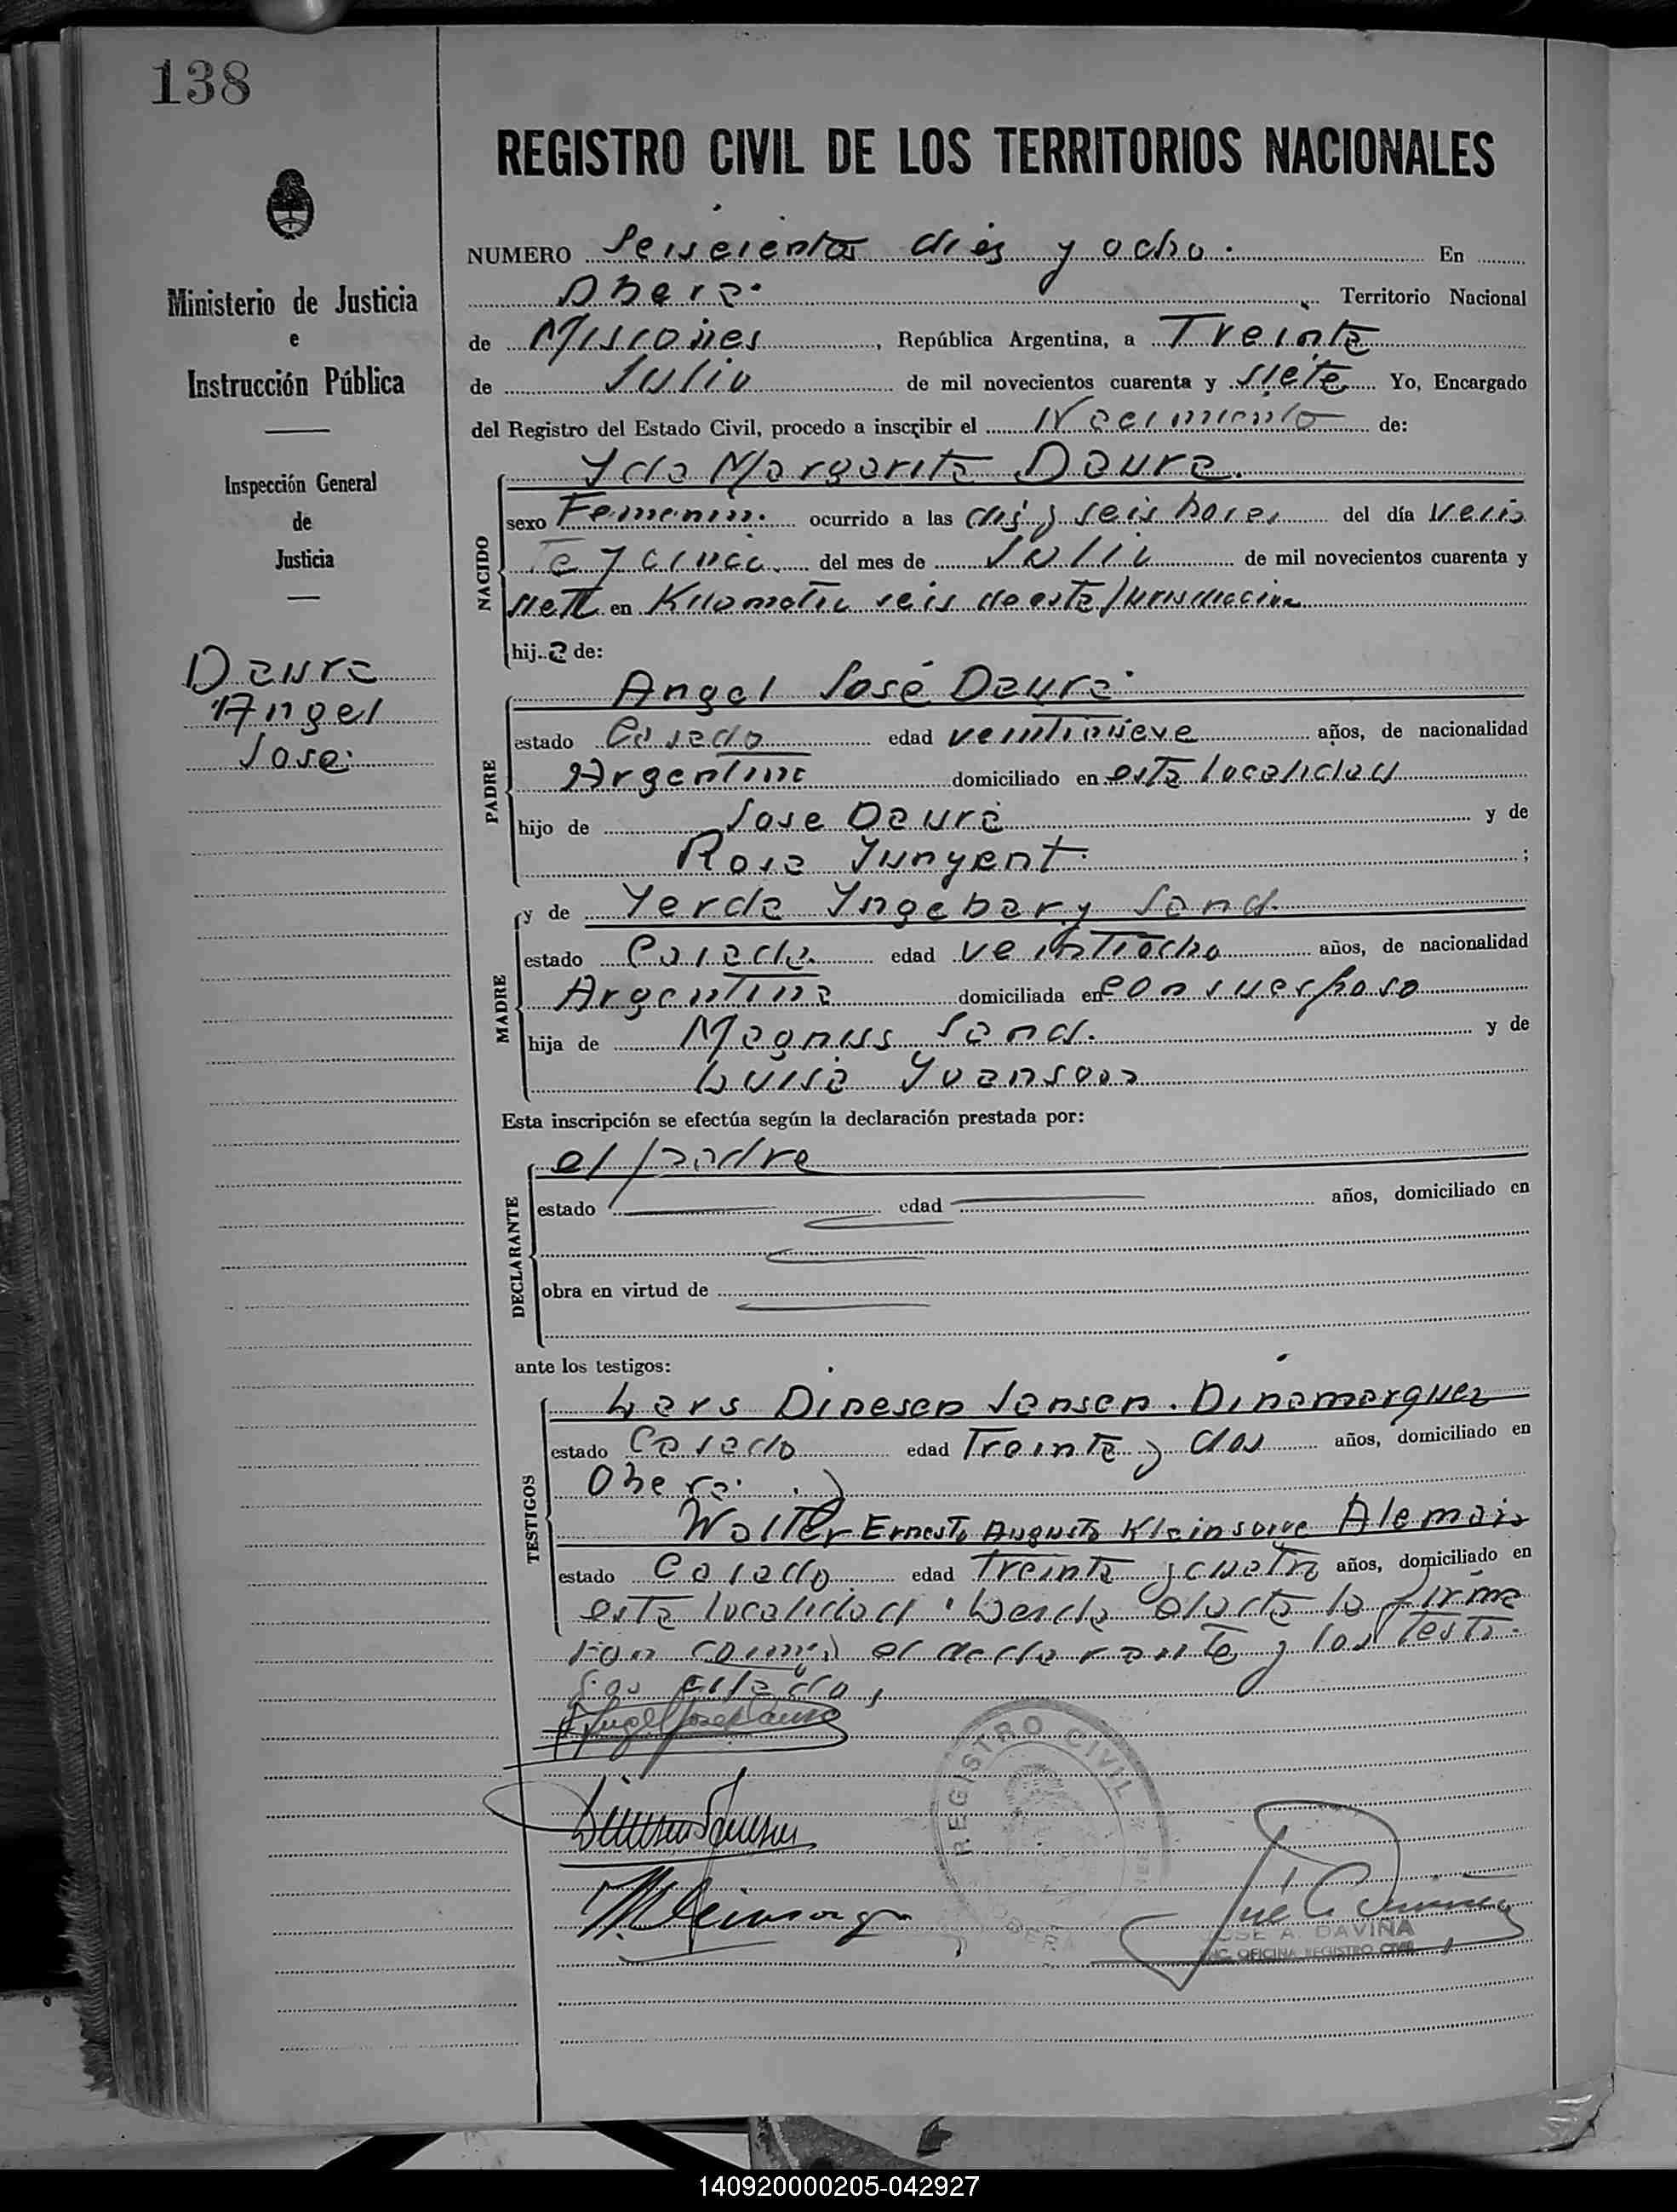 138
REGISTRO CIVIL DE LOS TERRITORIOS NACIONALES
Ministerio de Justicia
e
Instrucción Pública
Inspección General
de
Justicia
Daura
Angel
Jose.
NUMERO Seiscientos diés y ocho. En
Obera. Territorio Nacional
de Misiones, República Argentina, a Treinta
de Julio de mil novecientos cuarenta y siete Yo, Encargado
del Registro del Estado Civil, procedo a inscribir el Nacimiento de:
NACIDO
Yda Margarita Daura.
sexo Femenin. ocurrido a las dis y seis hores del día vein
te y cinco. del mes de Julio de mil novecientos cuarenta y
siete en Kilometro seis de esta Jurisdiccion
hij..a de:
PADRE
Angel José Daura.
estado Casado edad veintinueve años, de nacionalidad
Argentino domiciliado en esta localidad
hijo de Jose Daura y de
Rosa Yunyent. ;
MADRE
y de Yerda Yngebory Sand.
estado Casada edad veintiocho años, de nacionalidad
Argentina domiciliada en con su esposo
hija de Magnus Sand. y de
Luisa Yoanson
Esta inscripción se efectúa según la declaración prestada por:
DECLARANTE
el padre
estado edad años, domiciliado en
obra en virtud de
ante los testigos:
TESTIGOS
Lars Dinesen Jensen. Dinamarques
estado Casado edad Treinta y dos años, domiciliado en
Obera.
Walter Ernesto Augusto Kleinsorge Aleman
estado Casado edad treinta y cuatro años, domiciliado en
esta localidad. Leida el acta la firma
ron conmigo el declarante y los testi.
gos citado,
Angel Jose Daura
Dinesen Jensen
REGISTRO CIVIL
OBERA
JOSE A. DAVIÑA
ENC. OFICINA REGISTRO CIVIL
140920000205-042927